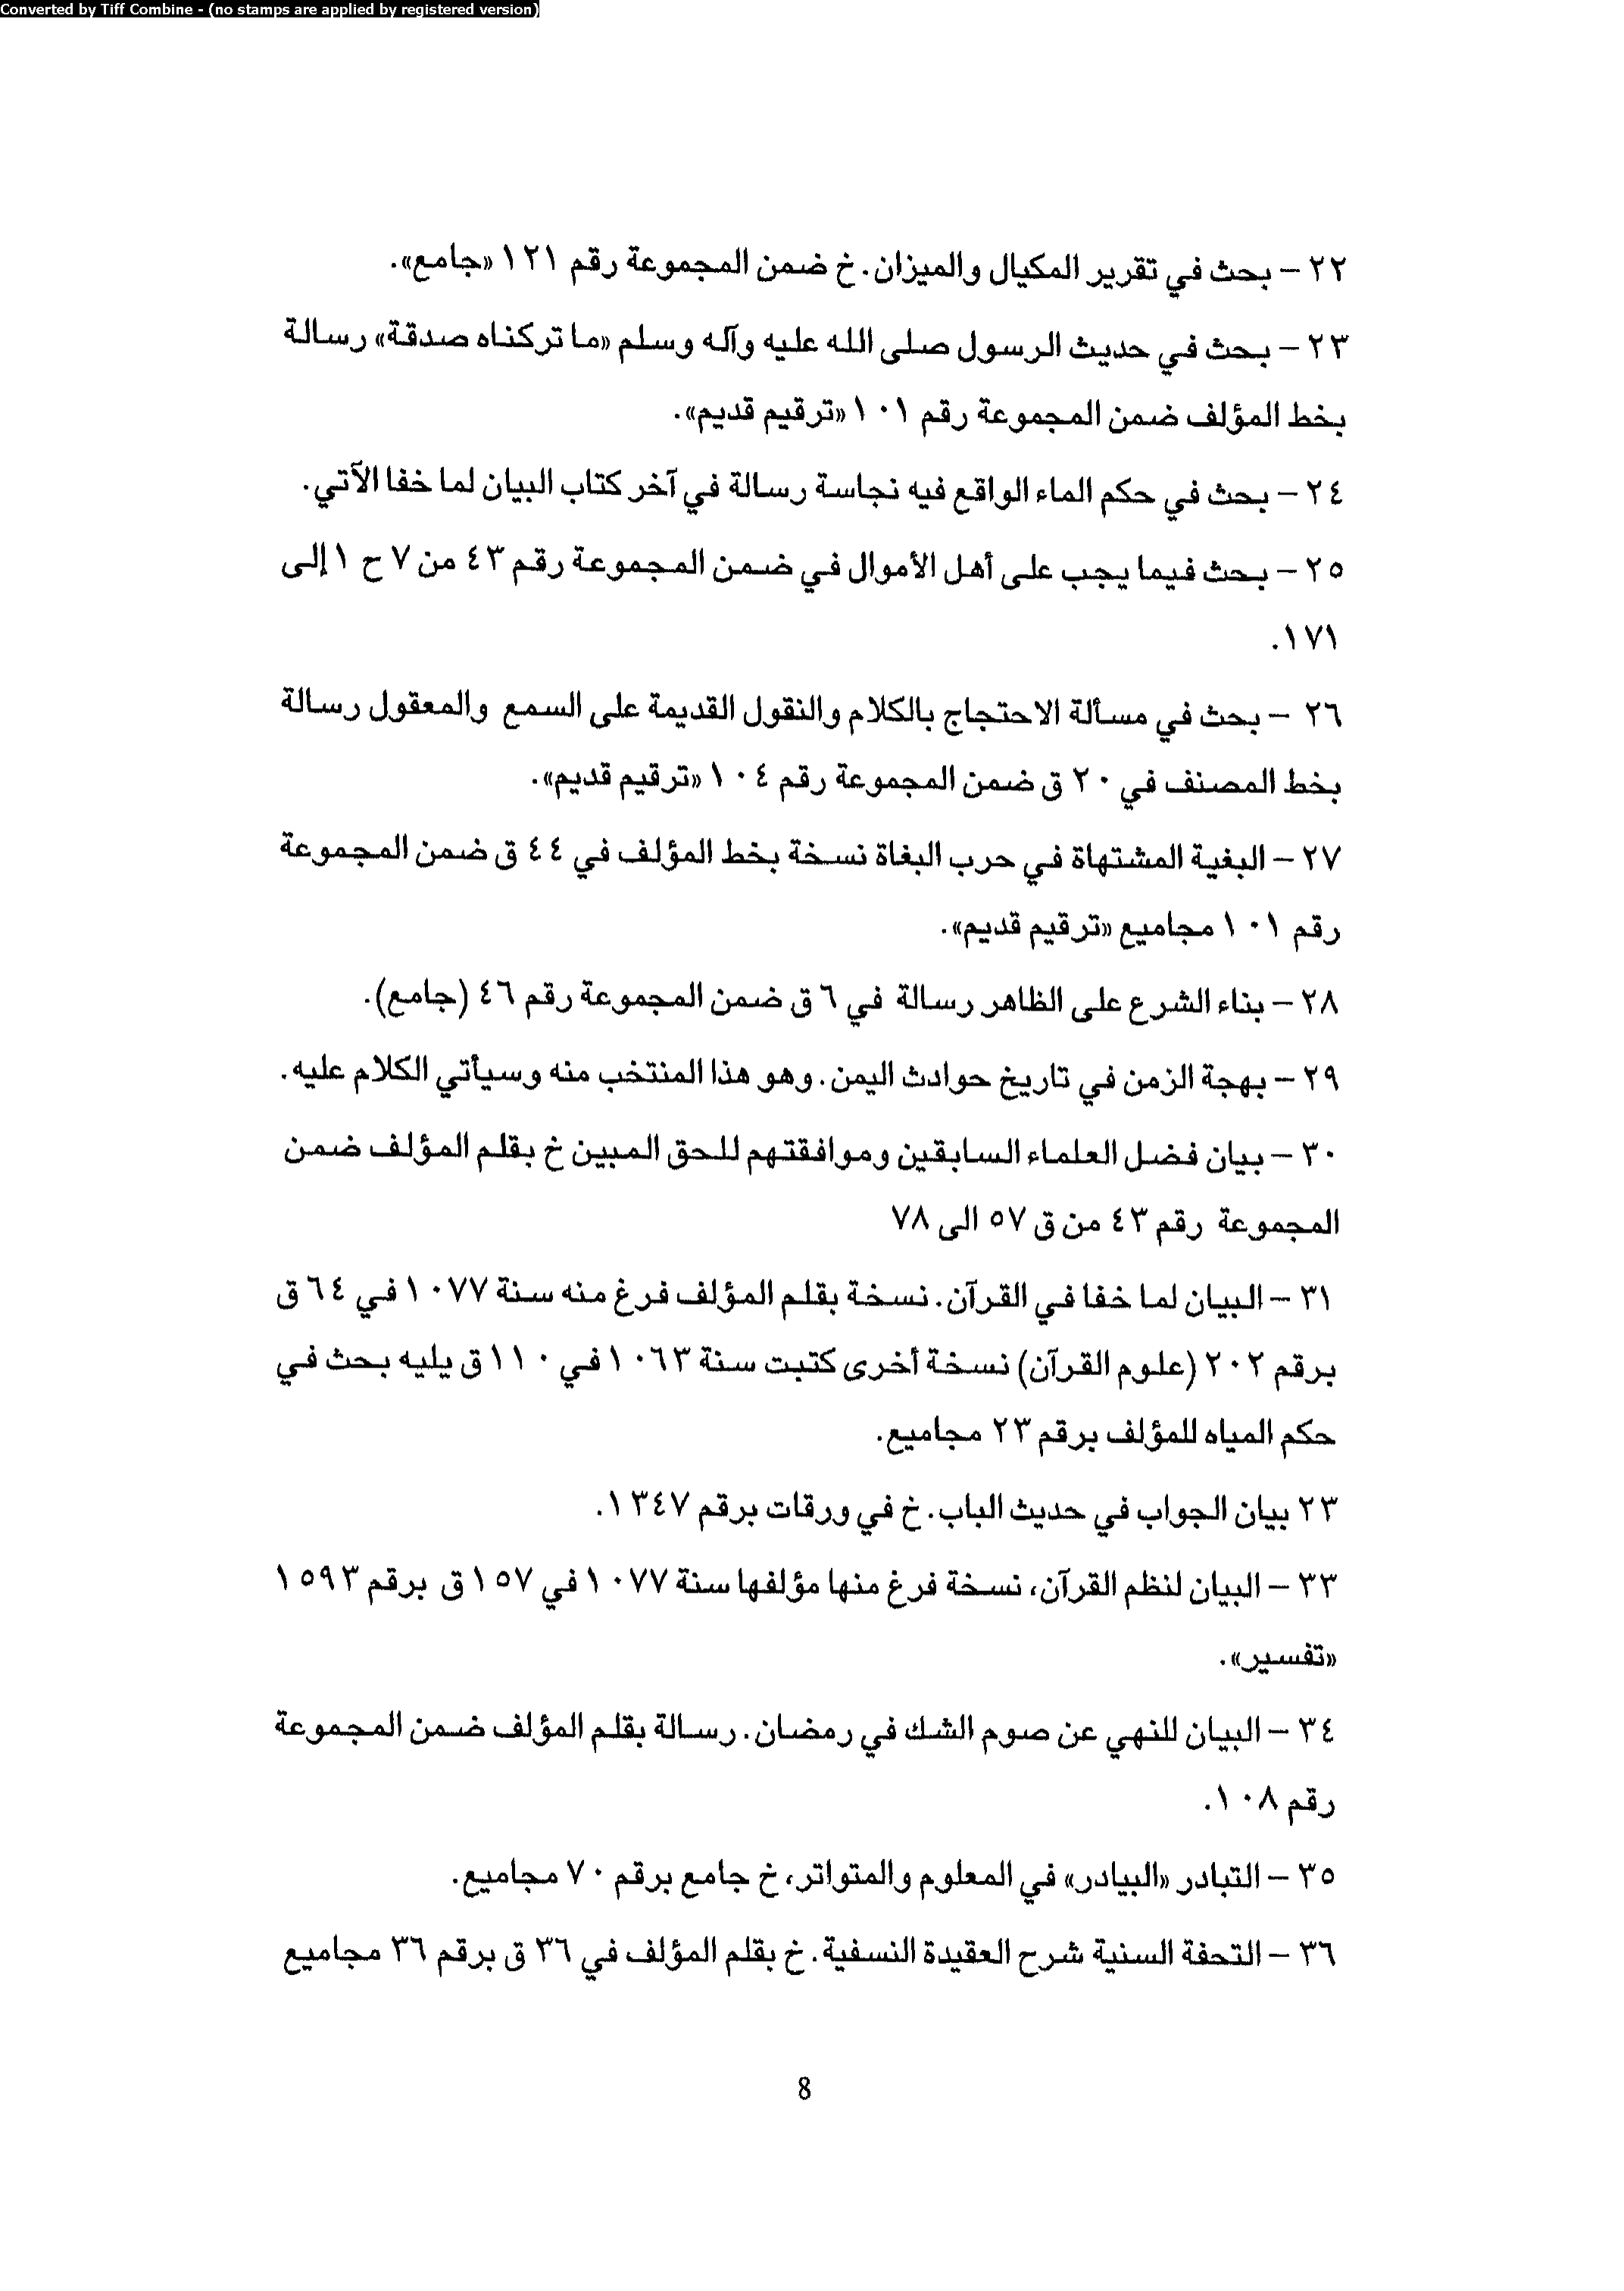 Converted by Tiff Combine - (no stamps are applied by registered version)
٢٢ – بحث في تقرير المكيال والميزان. خ ضمن المجموعة رقم ١٢١ «جامع».
٢٣ – بحث في حديث الرسول صلى الله عليه وآله وسلم «ما تركناه صدقة» رسالة
بخط المؤلف ضمن المجموعة رقم ١٠١ «ترقيم قديم».
٢٤ – بحث في حكم الماء الواقع فيه نجاسة رسالة في آخر كتاب البيان لما خفا الآتي.
٢٥ – بحث فيما يجب على أهل الأموال في ضمن المجموعة رقم ٤٣ من ٧ ح ١ إلى
١٧١.
٢٦ – بحث في مسألة الاحتجاج بالكلام والنقول القديمة على السمع والمعقول رسالة
بخط المصنف في ٢٠ ق ضمن المجموعة رقم ١٠٤ «ترقيم قديم».
٢٧ – البغية المشتهاة في حرب البغاة نسخة بخط المؤلف في ٤٤ ق ضمن المجموعة
رقم ١٠١ مجاميع «ترقيم قديم».
٢٨ – بناء الشرع على الظاهر رسالة في ٦ ق ضمن المجموعة رقم ٤٦ (جامع).
٢٩ – بهجة الزمن في تاريخ حوادث اليمن. وهو هذا المنتخب منه وسيأتي الكلام عليه.
٣٠ – بيان فضل العلماء السابقين وموافقتهم للحق المبين خ بقلم المؤلف ضمن
المجموعة رقم ٤٣ من ق ٥٧ الى ٧٨
٣١ – البيان لما خفا في القرآن. نسخة بقلم المؤلف فرغ منه سنة ١٠٧٧ في ٦٤ ق
برقم ٢٠٢ (علوم القرآن) نسخة أخرى كتبت سنة ١٠٦٣ في ١١٠ ق يليه بحث في
حكم المياه للمؤلف برقم ٢٣ مجاميع.
٢٣ بيان الجواب في حديث الباب. خ في ورقات برقم ١٣٤٧.
٣٣ – البيان لنظم القرآن، نسخة فرغ منها مؤلفها سنة ١٠٧٧ في ١٥٧ ق برقم ١٥٩٣
«تفسير».
٣٤ – البيان للنهي عن صوم الشك في رمضان. رسالة بقلم المؤلف ضمن المجموعة
رقم ١٠٨.
٣٥ – التبادر «البيادر» في المعلوم والمتواتر، خ جامع برقم ٧٠ مجاميع.
٣٦ – التحفة السنية شرح العقيدة النسفية. خ بقلم المؤلف في ٣٦ ق برقم ٣٦ مجاميع
8